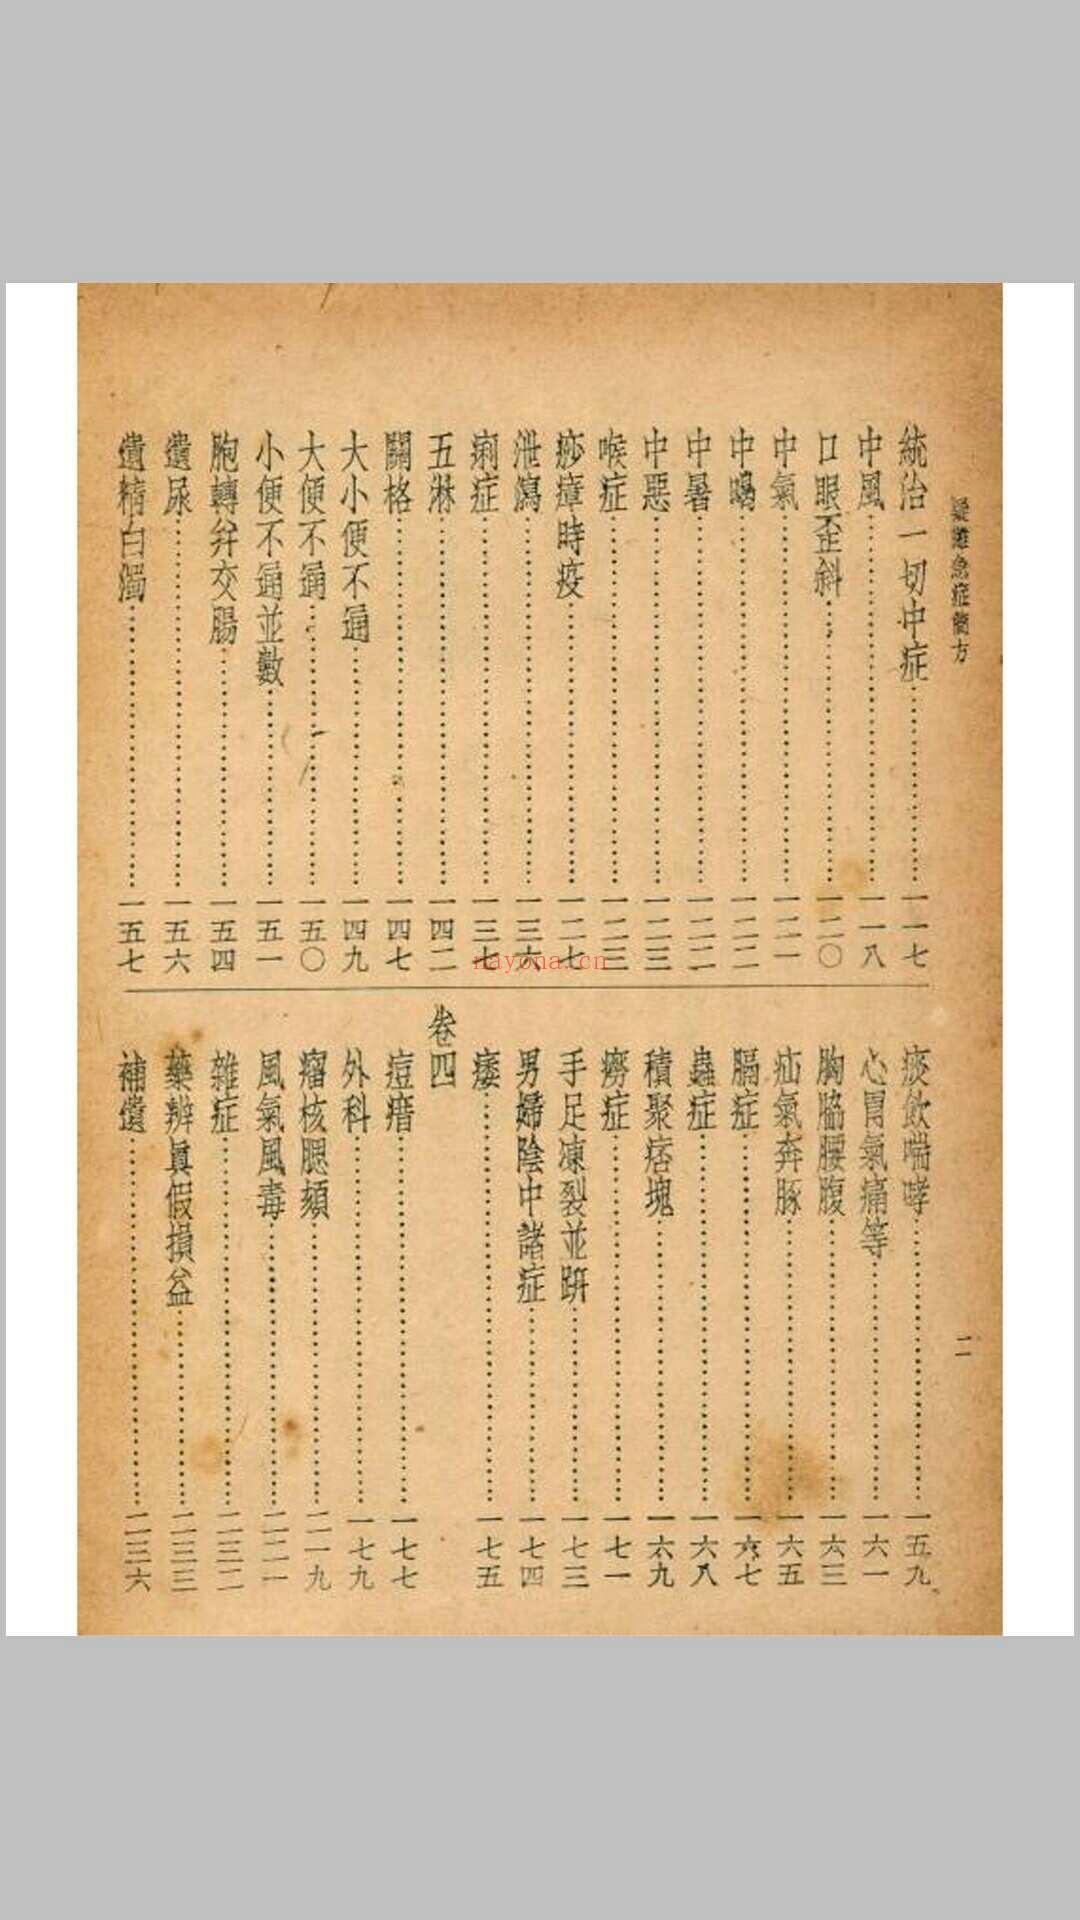 疑難急症簡方
二
統治一切中症……一一七
中風……一一八
口眼歪斜……一二〇
中氣……一二一
中暍……一二二
中暑……一二二
中惡……一二三
喉症……一二三
痧瘴時疫……一二七
泄瀉……一三六
痢症……一三七
五淋……一四二
關格……一四七
大小便不通……一四九
大便不通……一五〇
小便不通並數……一五一
胞轉并交腸……一五四
遺尿……一五六
遺精白濁……一五七
痰飲喘哮……一五九
心胃氣痛等……一六一
胸脇腰腹……一六三
疝氣奔豚……一六五
膈症……一六七
蟲症……一六八
積聚痞塊……一六九
癆症……一七一
手足凍裂並趼……一七三
男婦陰中諸症……一七四
痿……一七五
卷四
痘㾦……一七七
外科……一七九
瘤核腮頦……二一九
風氣風毒……二二一
雜症……二三二
藥辨眞假損益……二三三
補遺……二三六
nayona.cn